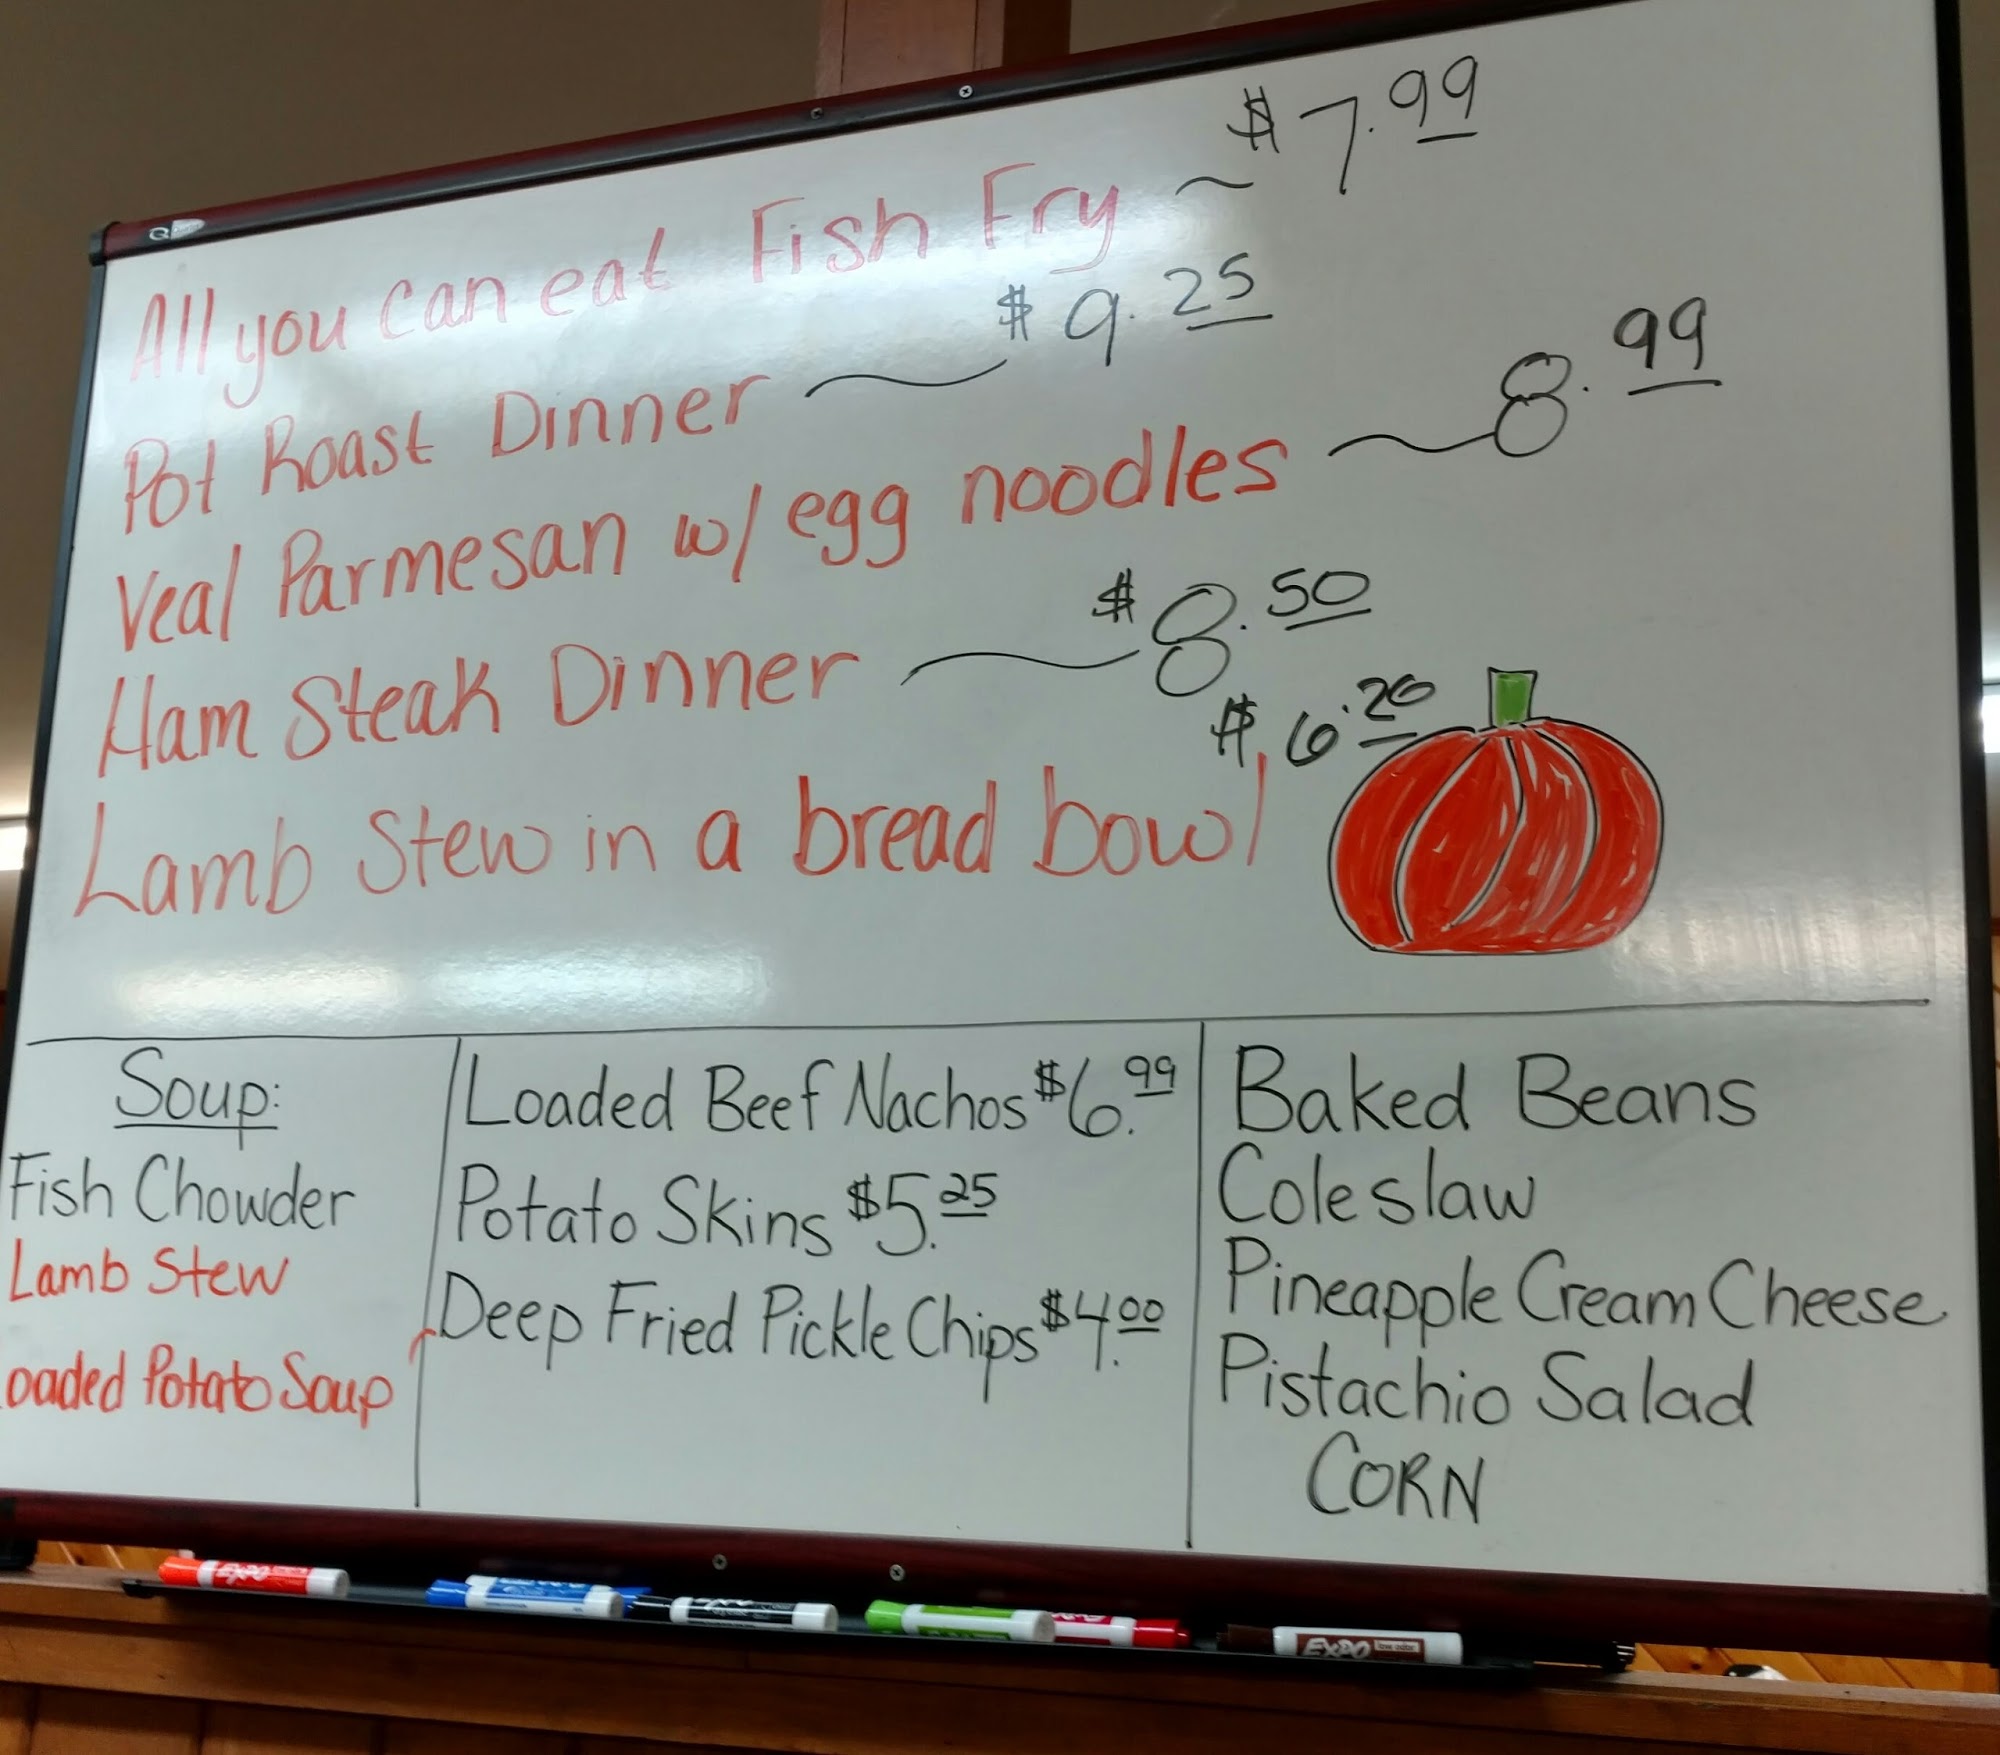 All you can eat Fish Fry ~ $7.99
Pot Roast Dinner $9.25
Veal Parmesan w/ egg noodles 8.99
Ham Steak Dinner $8.50
Lamb Stew in a bread bowl $6.20
Soup:
Fish Chowder
Lamb Stew
Loaded Potato Soup
Loaded Beef Nachos $6.99
Potato Skins $5.25
Deep Fried Pickle Chips $4.00
Baked Beans
Coleslaw
Pineapple Cream Cheese
Pistachio Salad
CORN
EXPO
EXPO low odor